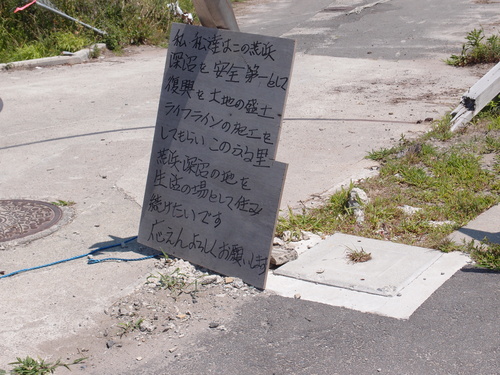 私・私達はこの荒浜
深沼を安全第一として
復興を土地の盛土
ライフラインの施工を
してもらいこのふる里
荒浜深沼の地を
生活の場として住み
続けたいです
応えんよろしくお願いします